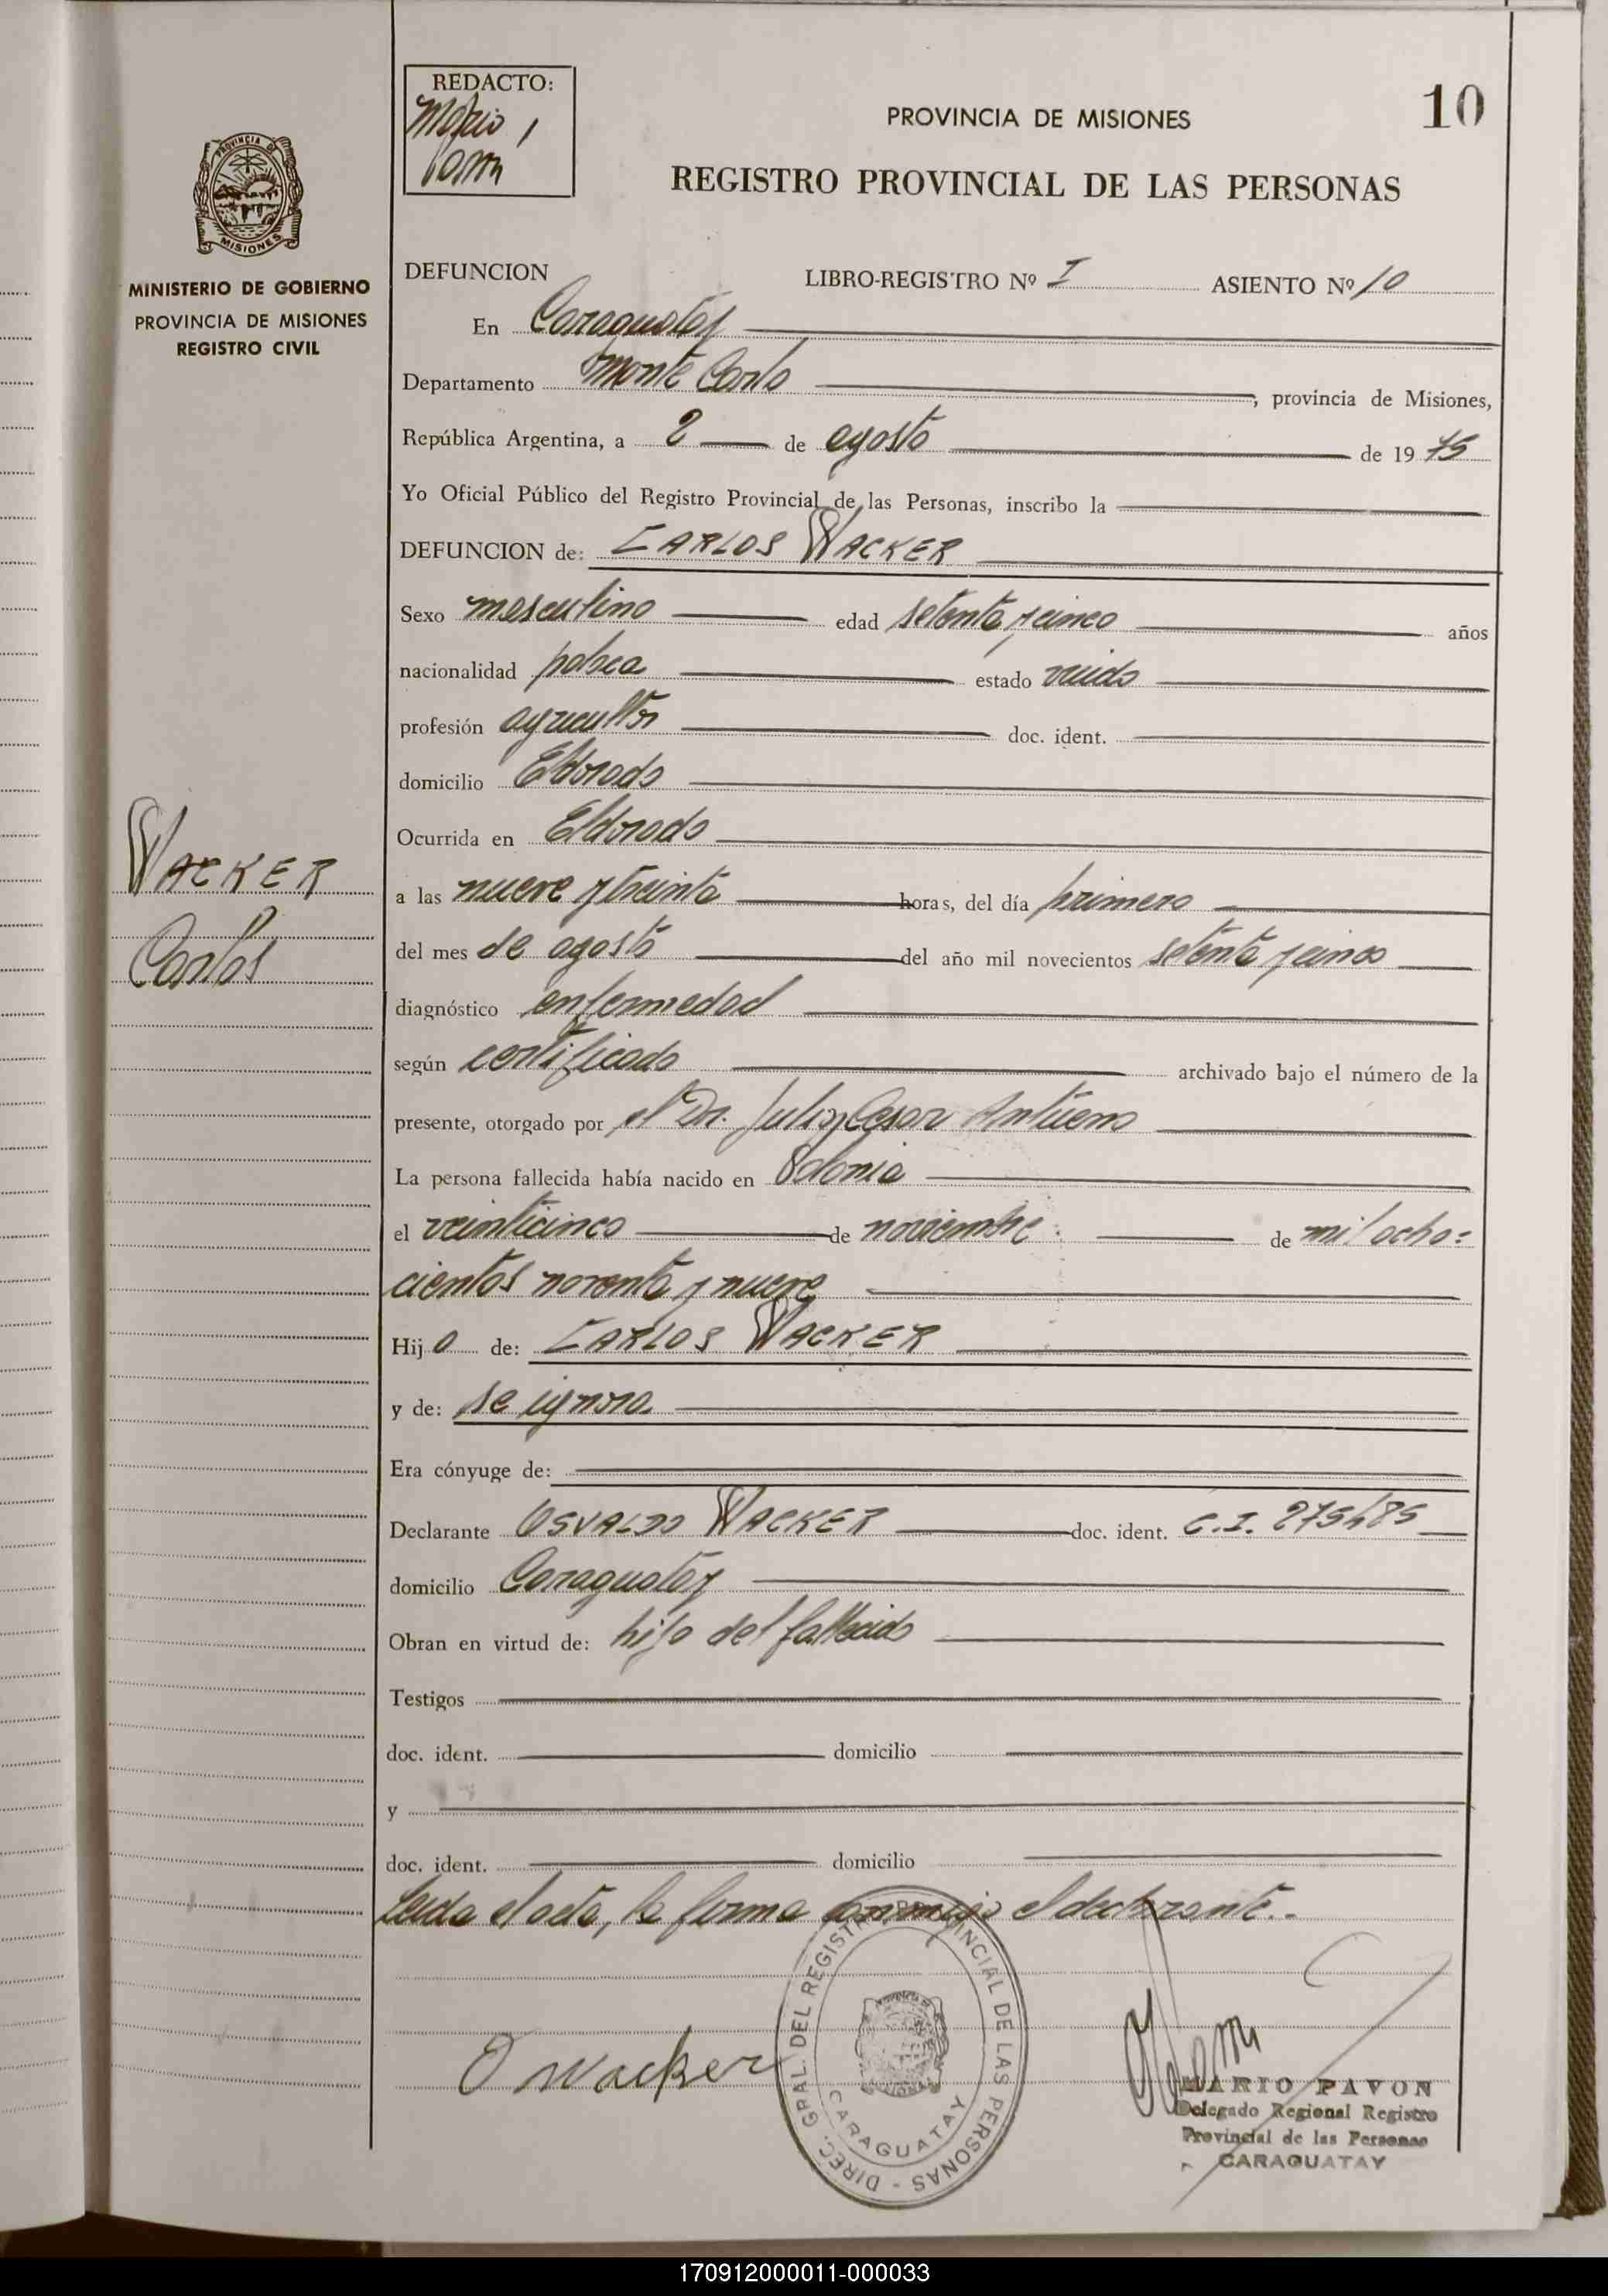 REDACTO:
Mario
PROVINCIA DE MISIONES
10
REGISTRO PROVINCIAL DE LAS PERSONAS
PROVINCIA DE
MISIONES
MINISTERIO DE GOBIERNO
PROVINCIA DE MISIONES
REGISTRO CIVIL
DEFUNCION LIBRO-REGISTRO Nº I ASIENTO Nº 10
En Caraguatay
Departamento Monte Carlo, provincia de Misiones,
República Argentina, a 2 de agosto de 1975
Yo Oficial Público del Registro Provincial de las Personas, inscribo la
DEFUNCION de: CARLOS WACKER
Sexo masculino edad setenta y cinco años
nacionalidad polaca estado viudo
profesión agricultor doc. ident.
domicilio Eldorado
Ocurrida en Eldorado
WACKER
Carlos
a las nueve y treinta horas, del día primero
del mes de agosto del año mil novecientos setenta y cinco
diagnóstico enfermedad
según certificado archivado bajo el número de la
presente, otorgado por el Dr. Julio Cesar
La persona fallecida había nacido en Polonia
el veinticinco de noviembre de mil ocho=
cientos noventa y nueve
Hijo de: CARLOS WACKER
y de: se ignora
Era cónyuge de:
Declarante OSVALDO WACKER doc. ident. C.I. 275485
domicilio Caraguatay
Obran en virtud de: hijo del fallecido
Testigos
doc. ident. domicilio
y
doc. ident. domicilio
Leida el acta, la firma conmigo el declarante..
DIREC. GRAL. DEL REGISTRO PROVINCIAL DE LAS PERSONAS -
CARAGUATAY
O Wacker
MARIO PAVON
Delegado Regional Registro
Provincial de las Personas
CARAGUATAY
170912000011-000033